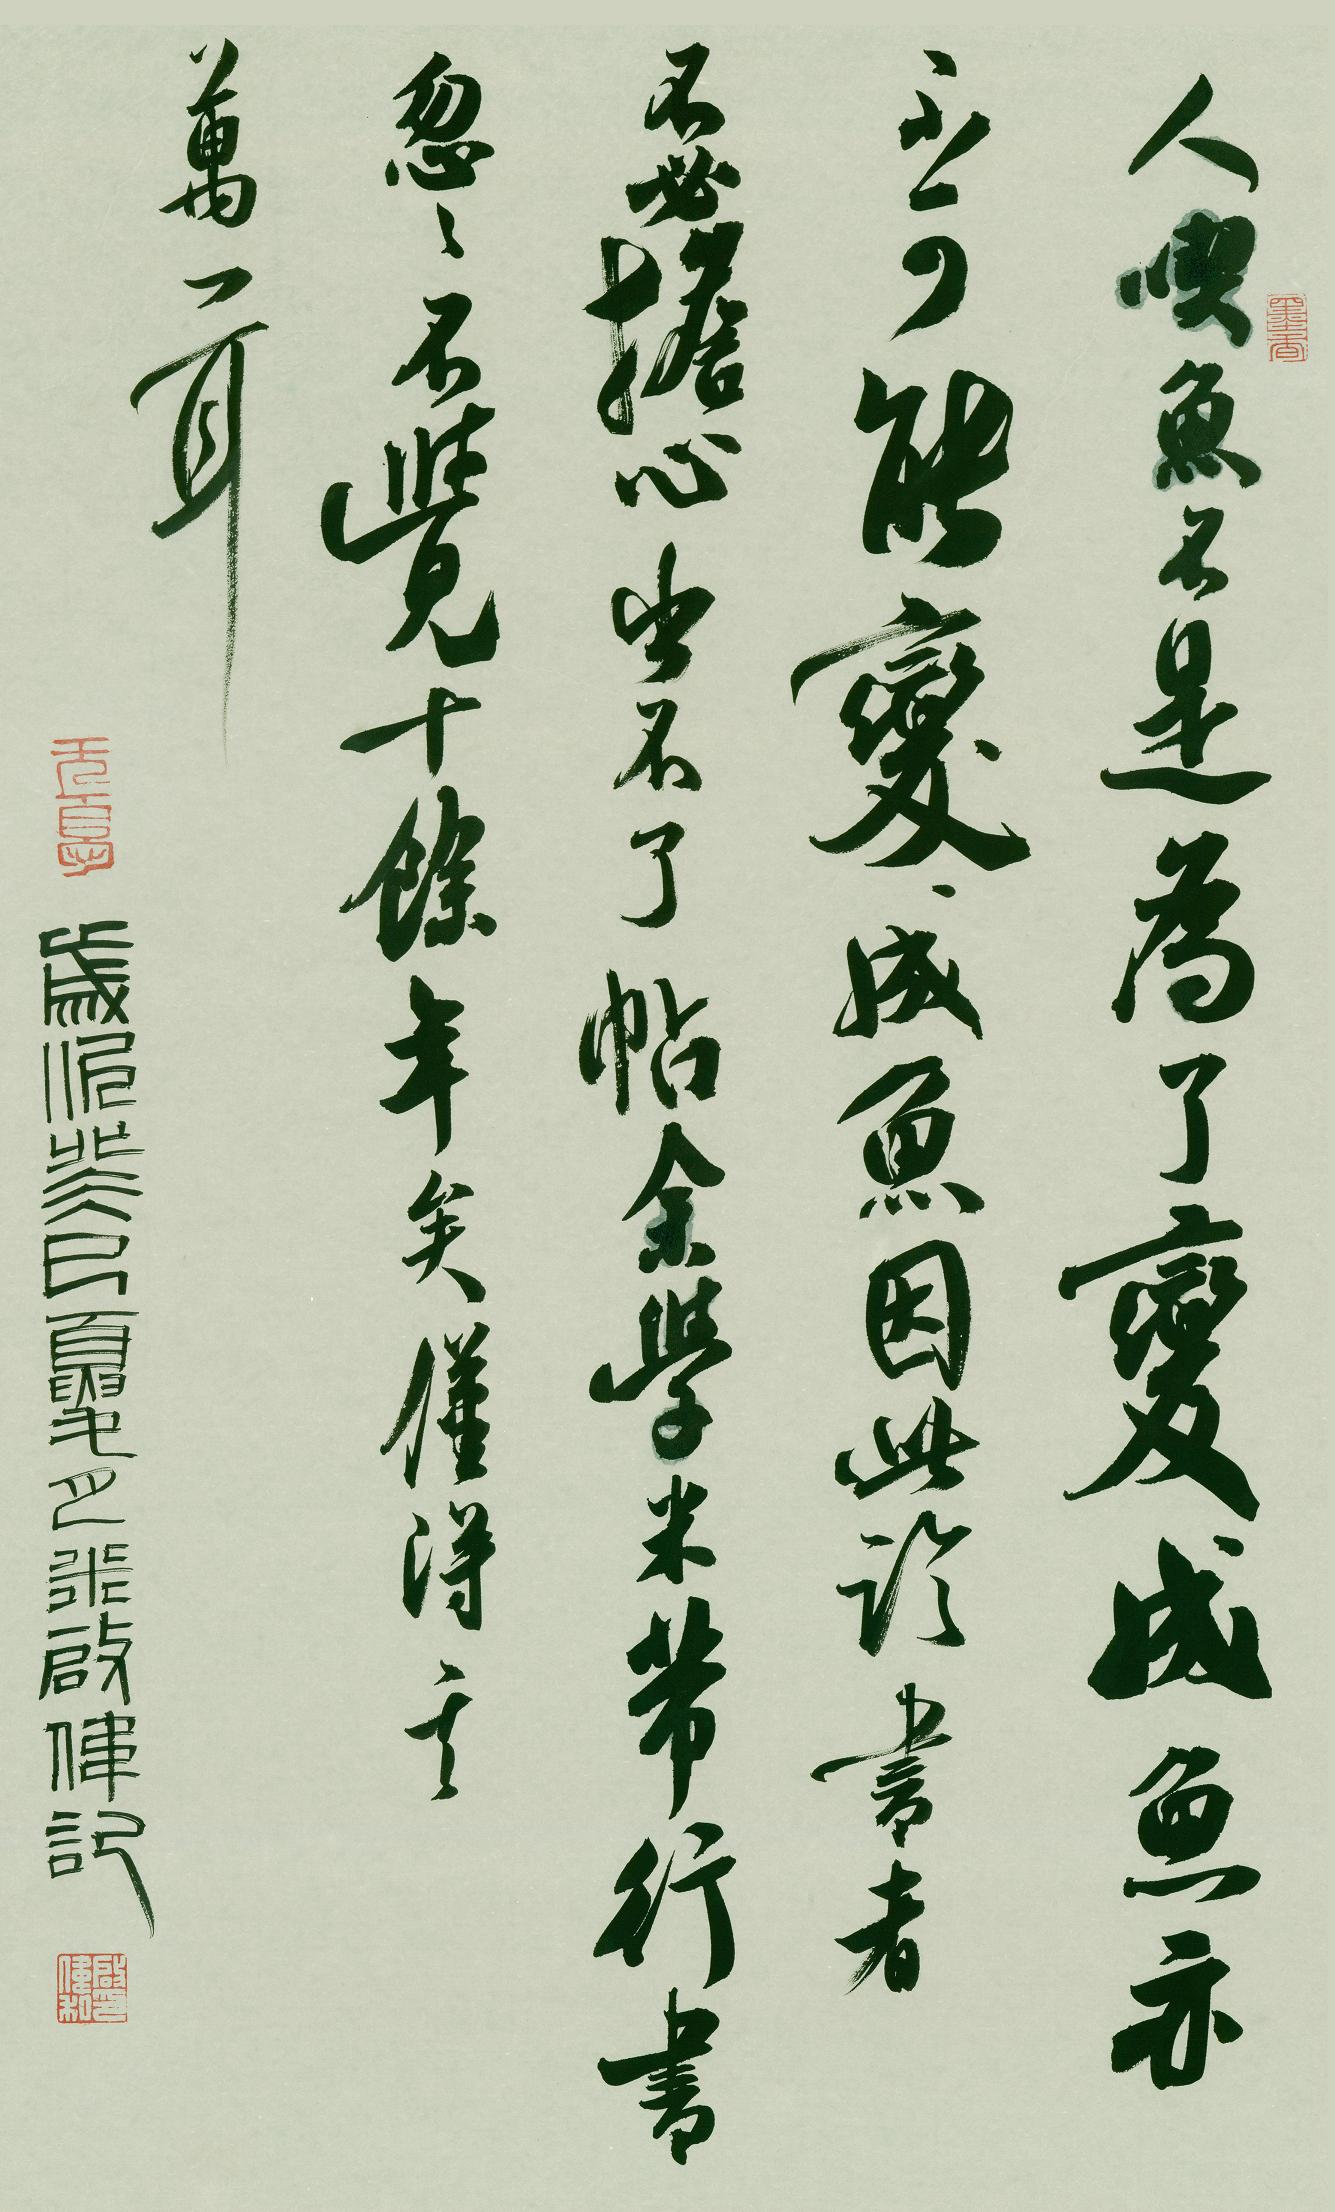 人喫魚不是為了變成魚亦
不可能變成魚因此臨書者
不必擔心出不了帖余學米芾行書
忽々不覺十餘年矣僅得其
萬一耳
歲次癸巳夏月張啟偉記
墨香